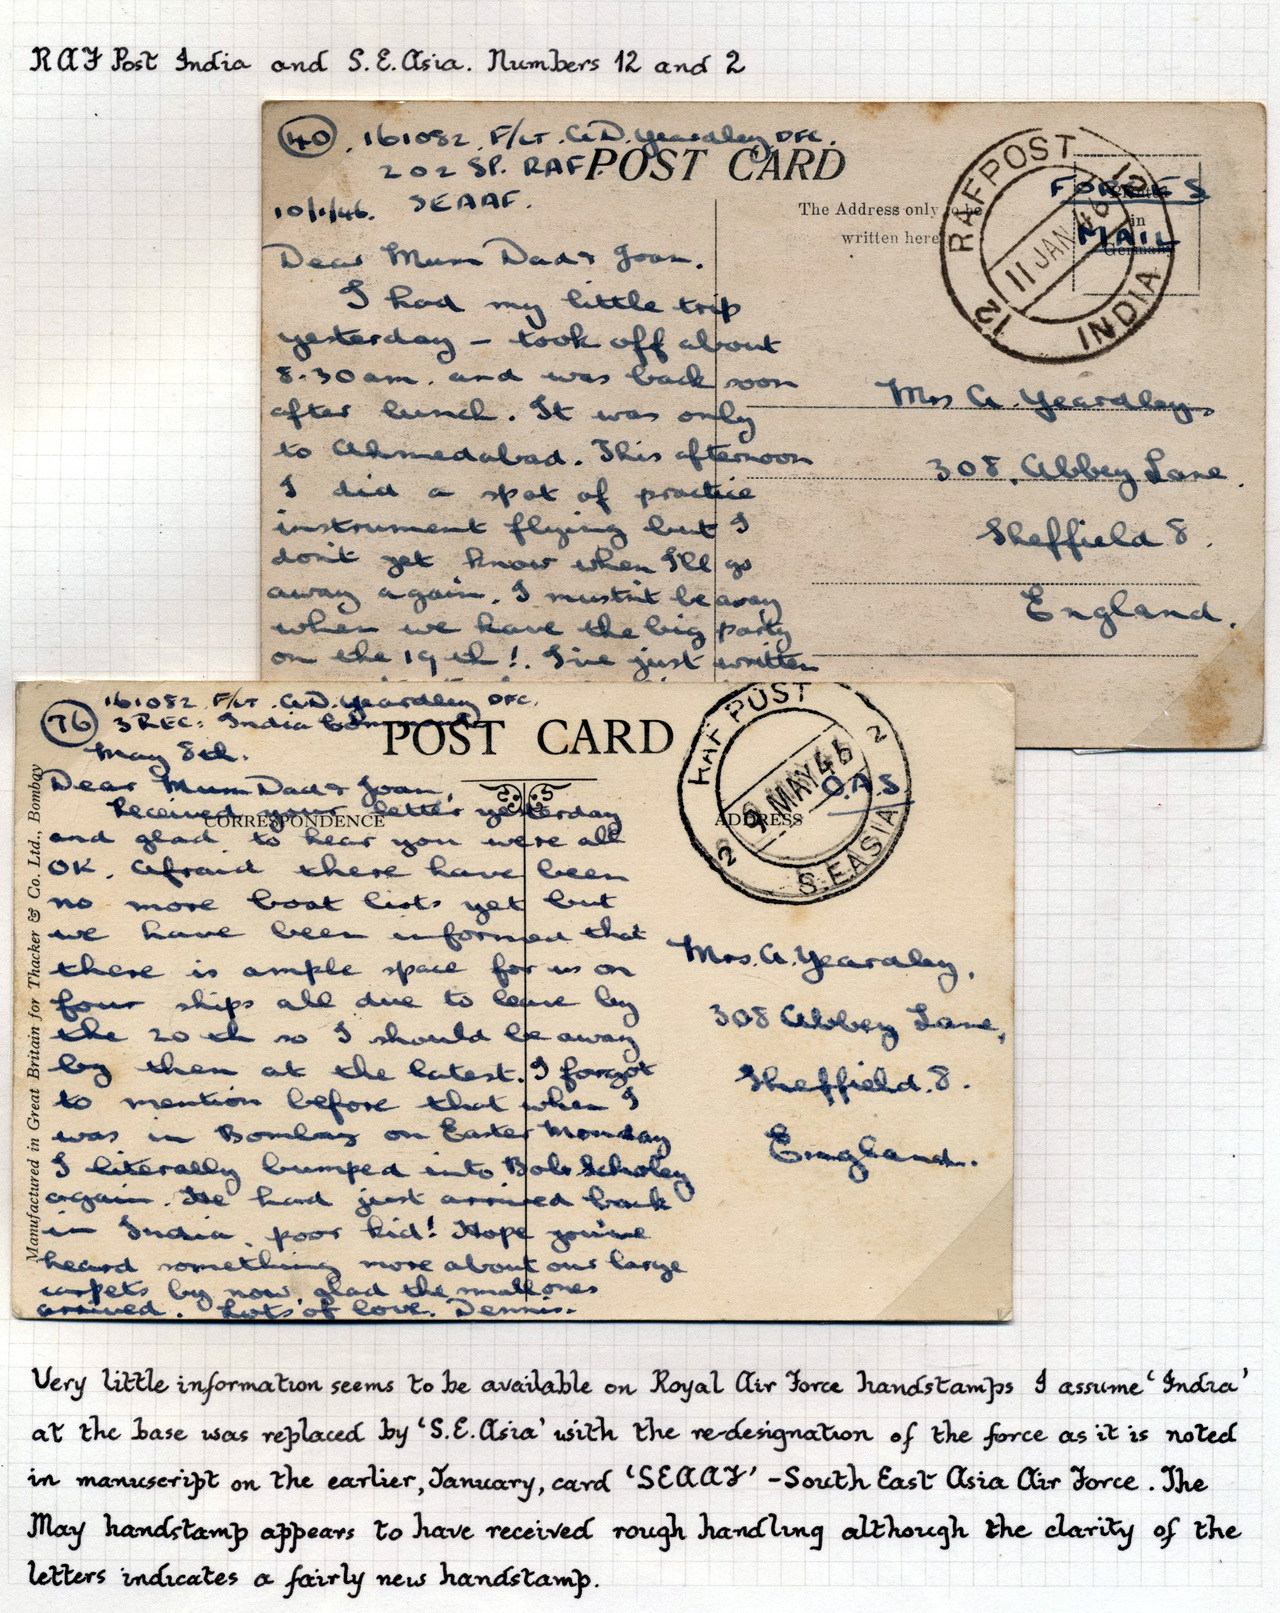 RAF Post India and S.E. Asia. Numbers 12 and 2
40
161082 F/LT. A.D. Yeardley DFC.
202 SP. RAF.
SEAAF.
10/1/46.
POST CARD
The Address only to be
written here
in
Germany
FORCES
MAIL
RAF POST 12
11 JAN 46
12 INDIA
Dear Mum Dad & Joan,
I had my little trip
yesterday – took off about
8.30am. and was back soon
after lunch. It was only
to Ahmedabad. This afternoon
I did a spot of practice
instrument flying but I
don't yet know when I'll go
away again. I mustn't be away
when we have the big party
on the 19th! I've just written
Mrs A. Yeardley,
308, Abbey Lane,
Sheffield 8.
England.
76
161082 F/LT A.D. Yeardley DFC.
3 REC: India Command
May 8th.
POST CARD
CORRESPONDENCE
ADDRESS
RAF POST 2
9 MAY 46
2 S.E ASIA
O.A.S.
Dear Mum Dad & Joan,
Received your letter yesterday
and glad to hear you were all
OK. Afraid there have been
no more boat lists yet but
we have been informed that
there is ample space for us on
four ships all due to leave by
the 20th so I should be away
by then at the latest. I forgot
to mention before that when I
was in Bombay on Easter Monday
I literally bumped into Bob Scholey
again. He had just arrived back
in India, poor kid! Hope you've
heard something more about our large
carpets by now, glad the small ones
arrived. Lots of love. Dennis.
Mrs. A. Yeardley,
308 Abbey Lane,
Sheffield. 8.
England.
Manufactured in Great Britain for Thacker & Co. Ltd., Bombay
Very little information seems to be available on Royal Air Force handstamps I assume 'India'
at the base was replaced by 'S.E. Asia' with the re-designation of the force as it is noted
in manuscript on the earlier, January, card 'SEAAF' – South East Asia Air Force. The
May handstamp appears to have received rough handling although the clarity of the
letters indicates a fairly new handstamp.